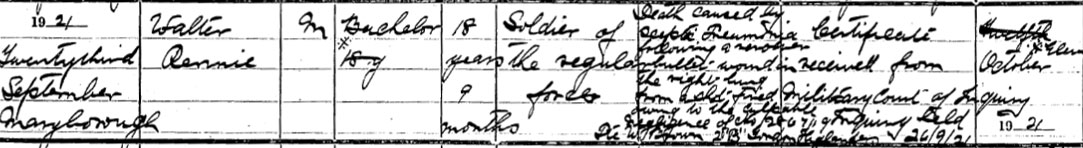 1921
Twentythird
September
Maryborough
Walter
Rennie
M
Bachelor
18
years
9
months
Soldier of
the regular
forces
Death caused by
Septic Pneumonia
following a revolver
bullet wound in
the right lung
from a shot fired
owing to the culpable
negligence of
Certificate
received from
Military Court of Inquiry
held
26/9/21
October
1921